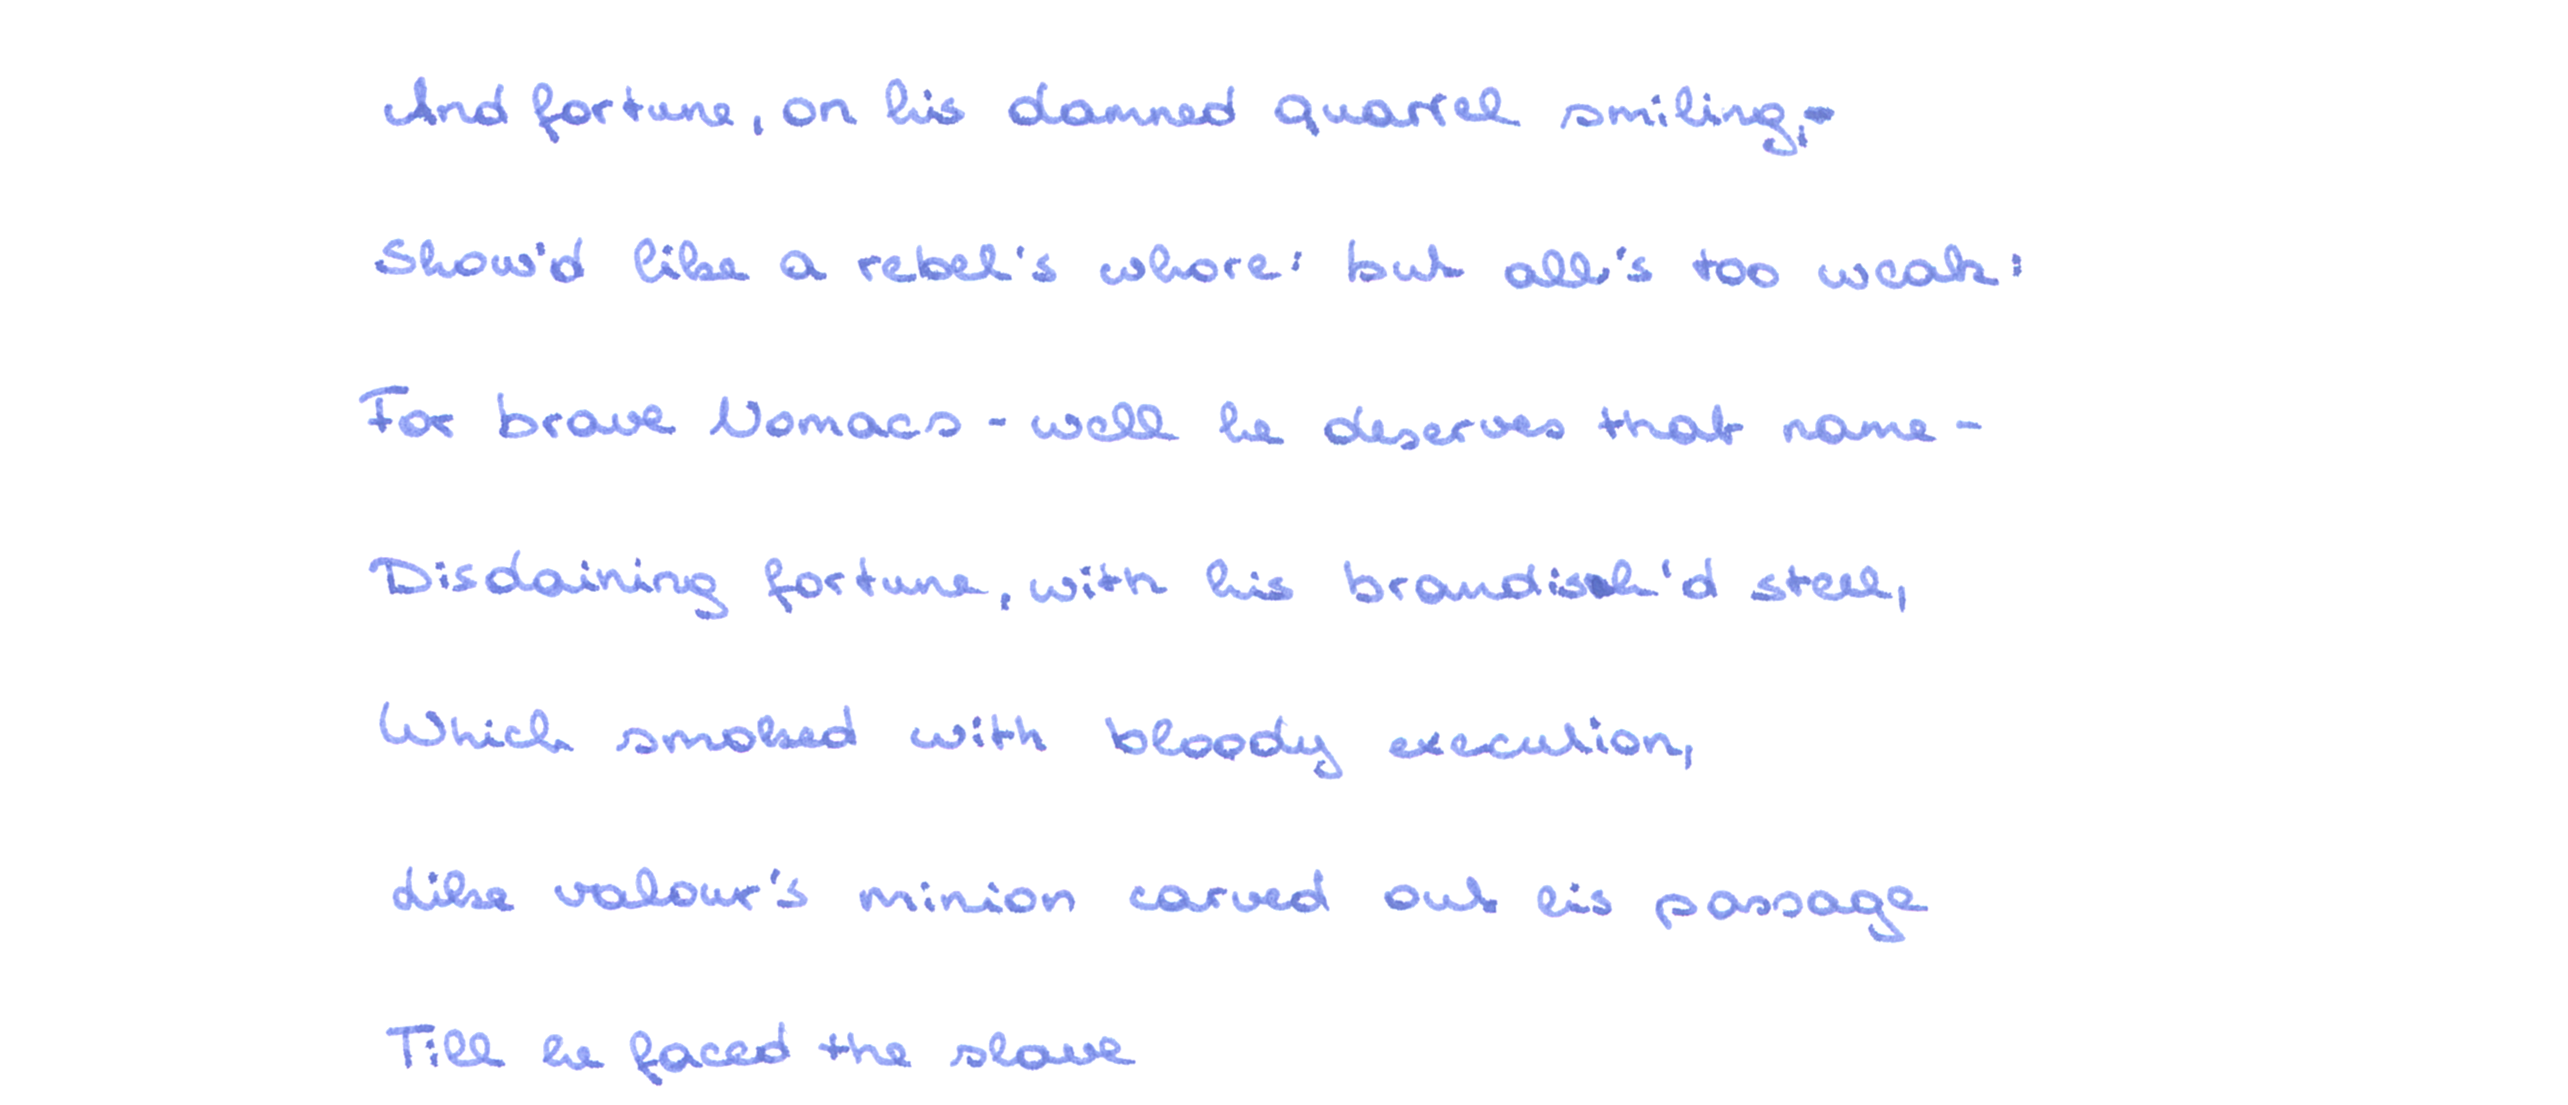 And fortune, on his damned quarrel smiling,-
Show'd like a rebel's whore: but all's too weak:
For brave Nomacs - well he deserves that name -
Disdaining fortune, with his brandish'd steel,
Which smoked with bloody execution,
Like valour's minion carved out his passage
Till he faced the slave